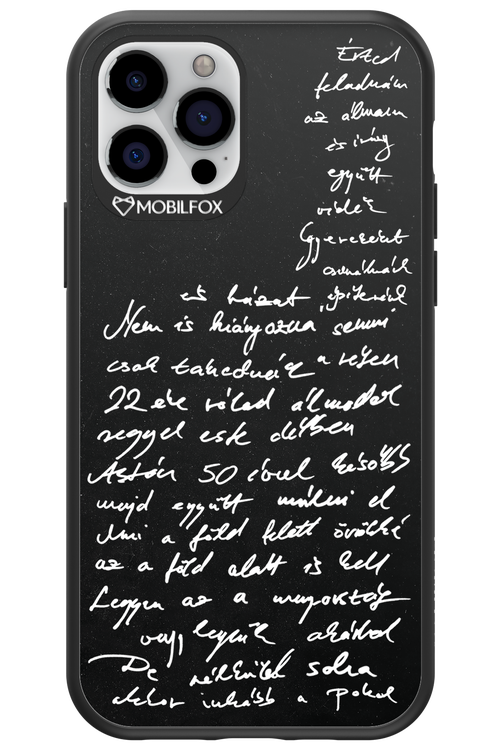 MOBILFOX
Érted
feladnám
az álmaim
és így
együtt
vidék
Gyerekeket
csinálnánk
és házat építenénk
Nem is hiányozna semmi
csak takednék a részem
22 éve rólad álmodok
reggel este délben
Aztán 50 évvel később
majd együtt múlni el
Ami a föld felett örökké
az a föld alatt is kell
Legyen az a mennyország
vagy legyünk akárhol
De nélküled soha
akkor inkább a pokol